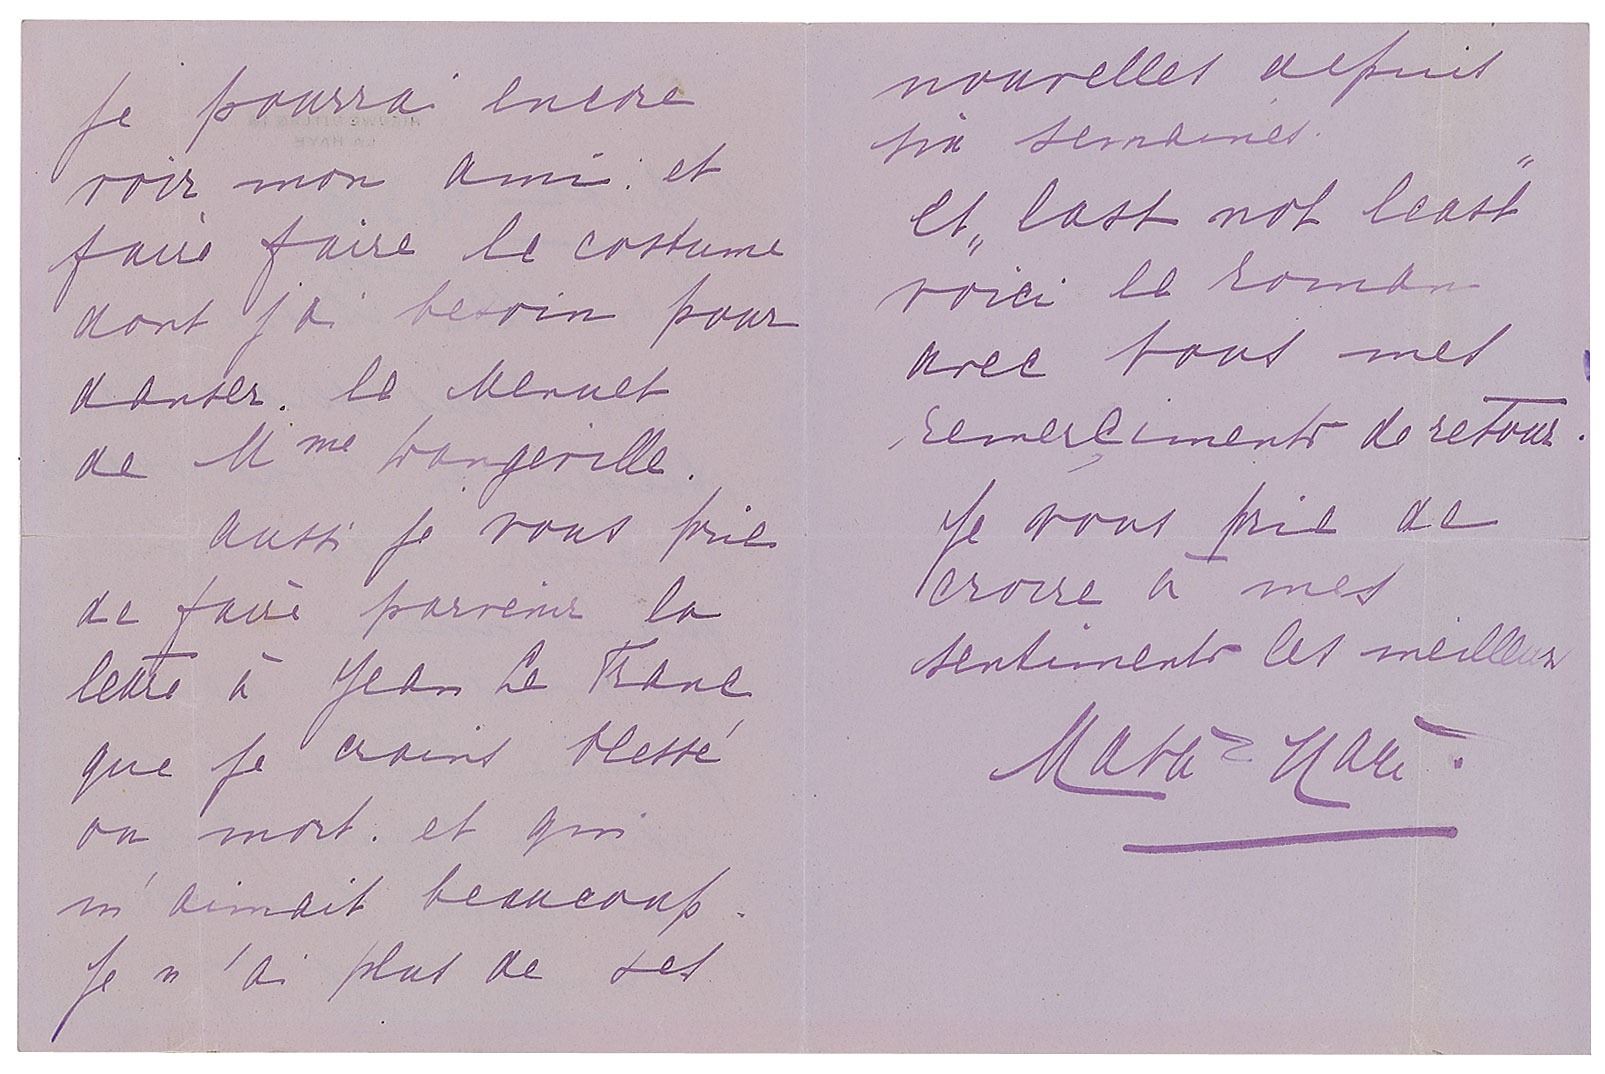 je pourrai encore
voir mon ami. et
faire faire le costume
dont j'ai besoin pour
danser. le Menuet
de Mme trangeville.
aussi je vous prie
de faire parvenir la
lettre à Jean Le Franc
que je crains blessé
ou mort. et qui
m'aimait beaucoup.
Je n'ai plus de ses
nouvelles depuis
six semaines.
et „last not least"
voici le roman
avec tous mes
remerciments de retour.
Je vous prie de
croire à mes
sentiments les meilleurs
Mata-Hari.
LA HAYE